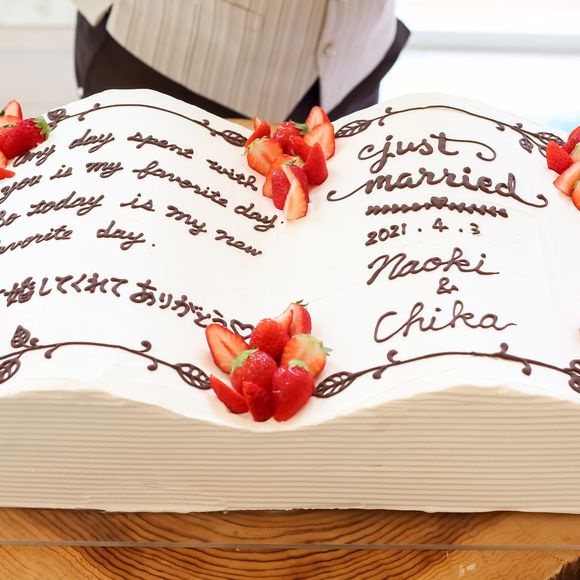 any day spent with
you is my favorite day.
So today is my new
favorite day.
婚してくれてありがとう♡
just
married
2021.4.3
Naoki
&
Chika